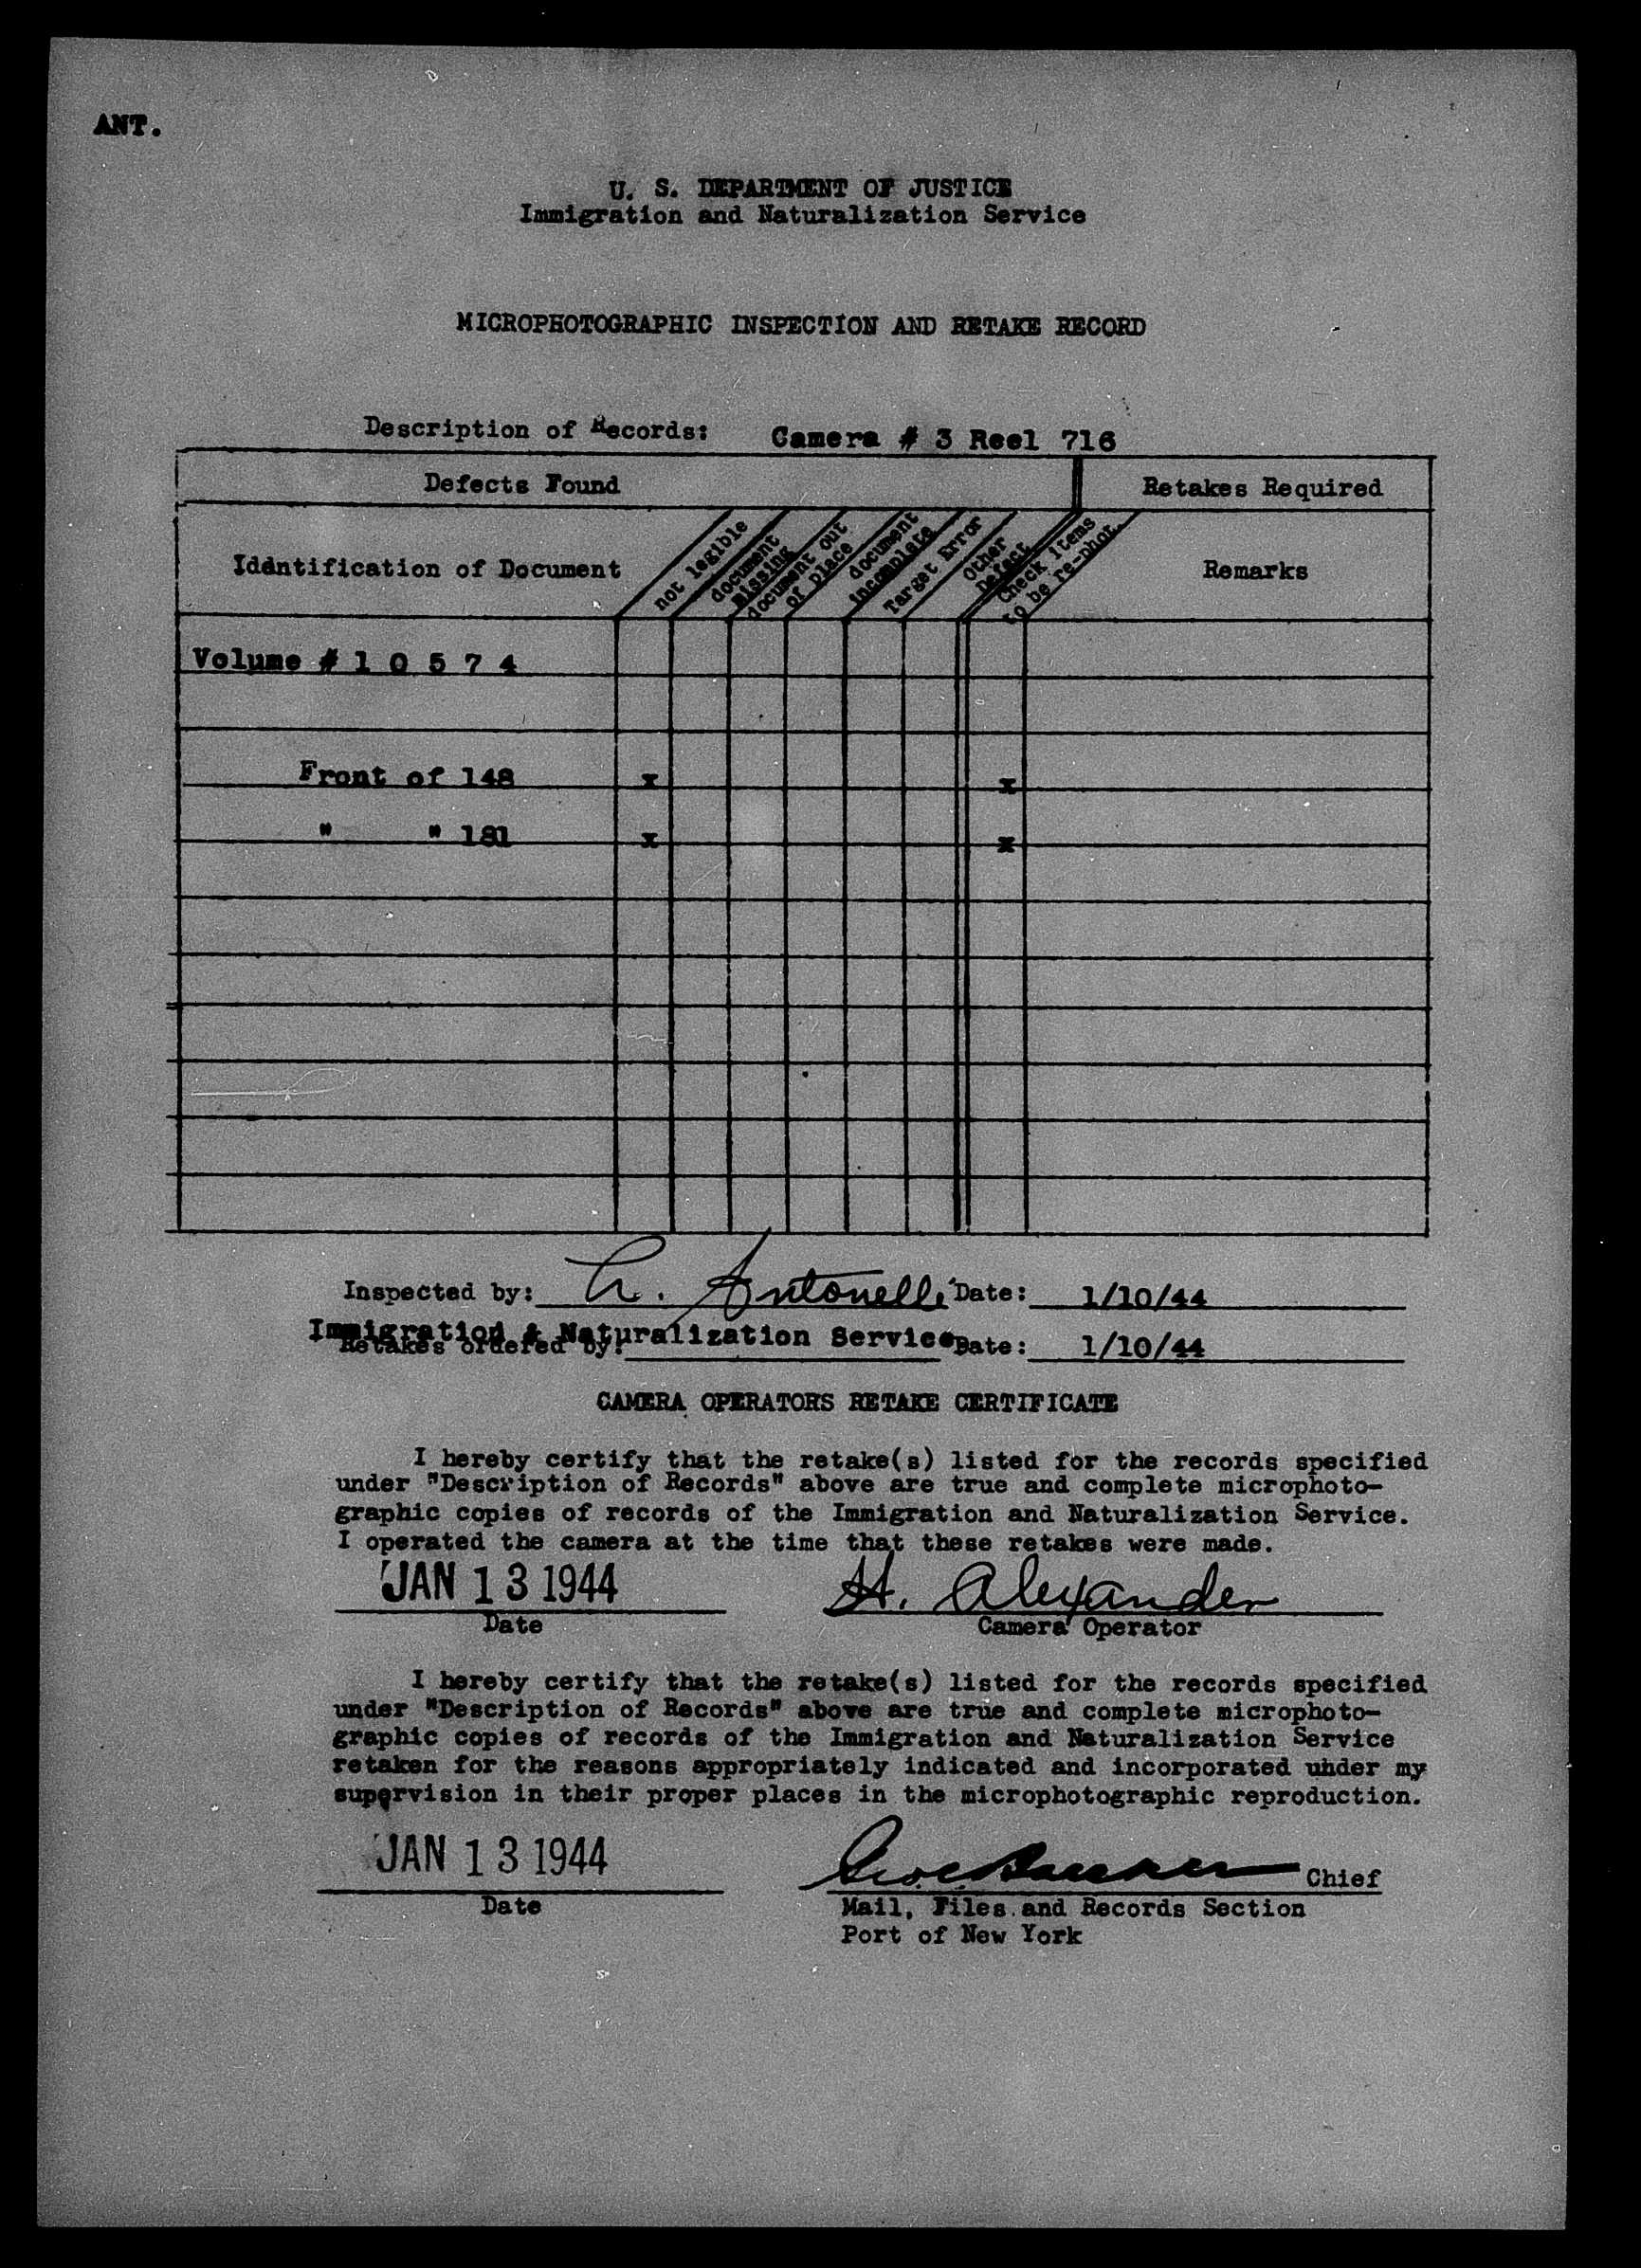 ANT.
U. S. DEPARTMENT OF JUSTICE
Immigration and Naturalization Service
MICROPHOTOGRAPHIC INSPECTION AND RETAKE RECORD
Description of Records: Camera # 3 Reel 716
Defects Found Retakes Required
Identification of Document
not legible
document
missing
document out
of place
document
incomplete
Target Error
Other
Defect
Check items
to be re-phot.
Remarks
Volume # 1 0 5 7 4
Front of 148 x x
" " 181 x x
Inspected by: Antonelli Date: 1/10/44
Immigration & Naturalization Service
Retakes ordered by: Date: 1/10/44
CAMERA OPERATORS RETAKE CERTIFICATE
I hereby certify that the retake(s) listed for the records specified
under "Description of Records" above are true and complete microphoto-
graphic copies of records of the Immigration and Naturalization Service.
I operated the camera at the time that these retakes were made.
JAN 13 1944 H. Alexander
Date Camera Operator
I hereby certify that the retake(s) listed for the records specified
under "Description of Records" above are true and complete microphoto-
graphic copies of records of the Immigration and Naturalization Service
retaken for the reasons appropriately indicated and incorporated under my
supervision in their proper places in the microphotographic reproduction.
JAN 13 1944 Chief
Date Mail, Files and Records Section
Port of New York